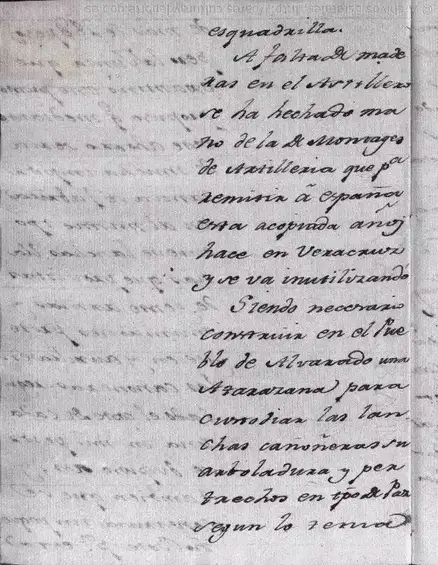 esquadrilla.
A falta de made
ras en el Astillero
se ha hechado ma
no de la de Montages
de Artilleria que pª
remitir á España
esta acopiada años
hace en Veracruz
y se va inutilizando
Siendo necesario
construir en el Pue
blo de Alvarado una
Atarazana para
custodiar las lan
chas cañoneras su
arboladura y per
trechos en tpõ de Paz
segun lo tenia